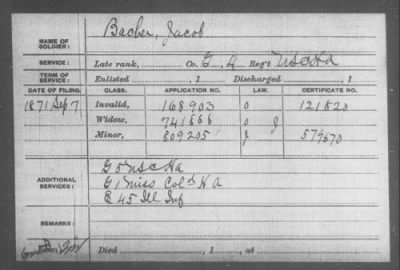 NAME OF SOLDIER: Bacher, Jacob
SERVICE: Late rank, Co. G, 4 Reg't US C H A
TERM OF SERVICE: Enlisted , 1 Discharged , 1
DATE OF FILING. CLASS. APPLICATION NO. LAW. CERTIFICATE NO.
1871 Sep 7 Invalid, 168903 O 121820
Widow, 741666 O J
Minor, 809205 J 579670
ADDITIONAL SERVICES: G 5 US C H A
G 1 Miss Col'd H A
E 45 Ill Inf
REMARKS:
Died , 1 , at